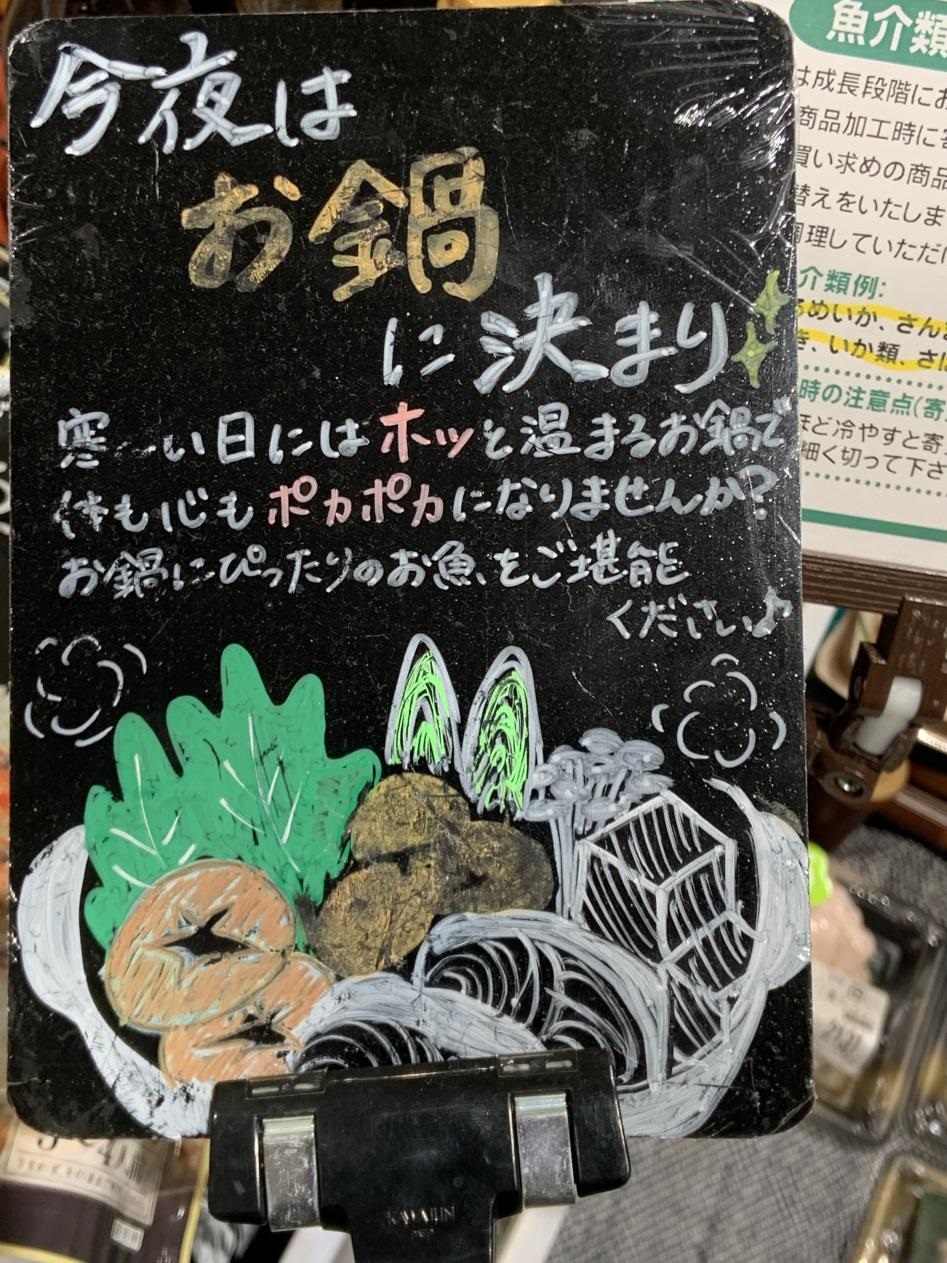 今夜は
お鍋
に決まり
寒〜い日にはホッと温まるお鍋で
体も心もポカポカになりませんか?
お鍋にぴったりのお魚をご堪能
ください♪
魚介類
は成長段階にお
商品加工時に寄
買い求めの商品
替えをいたしま
調理していただけ
介類例:
るめいか、さん
き、いか類、さば
時の注意点(寄
ほど冷やすと寄
細く切って下さ